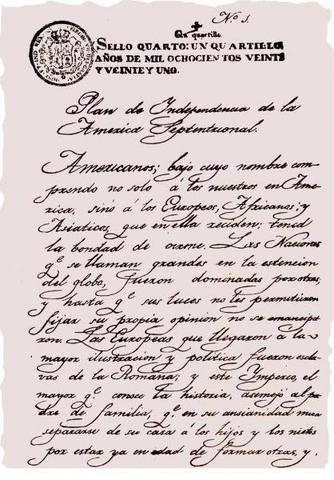 Nº 1.
Un quartillo
SELLO QUARTO: UN QUARTILLO
AÑOS DE MIL OCHOCIENTOS VEINTE
Y VEINTE Y UNO.
Plan de Independencia de la
America Septentrional.
Americanos; bajo cuyo nombre com-
prendo no solo á los nuestros en Ame-
rica, sinó á los Europeos, Africanos, y
Asiaticos, que en ella reciden: tened
la bondad de oirme. Las Naciones
q.e se llaman grandes en la estencion
del globo, fueron dominadas por otras,
y hasta q.e sus luces no les permitieron
fijar su propia opinion no se emancipa-
ron. Las Europeas que llegaron á la
mayor ilustracion y politica fueron escla-
vas de la Romana; y este Imperio, el
mayor q.e conoce la historia, asemejó al pa-
dre de familia, q.e en su ancianidad mira
separarse de su casa á los hijos y los nietos
por estar ya en edad de formar otras, y